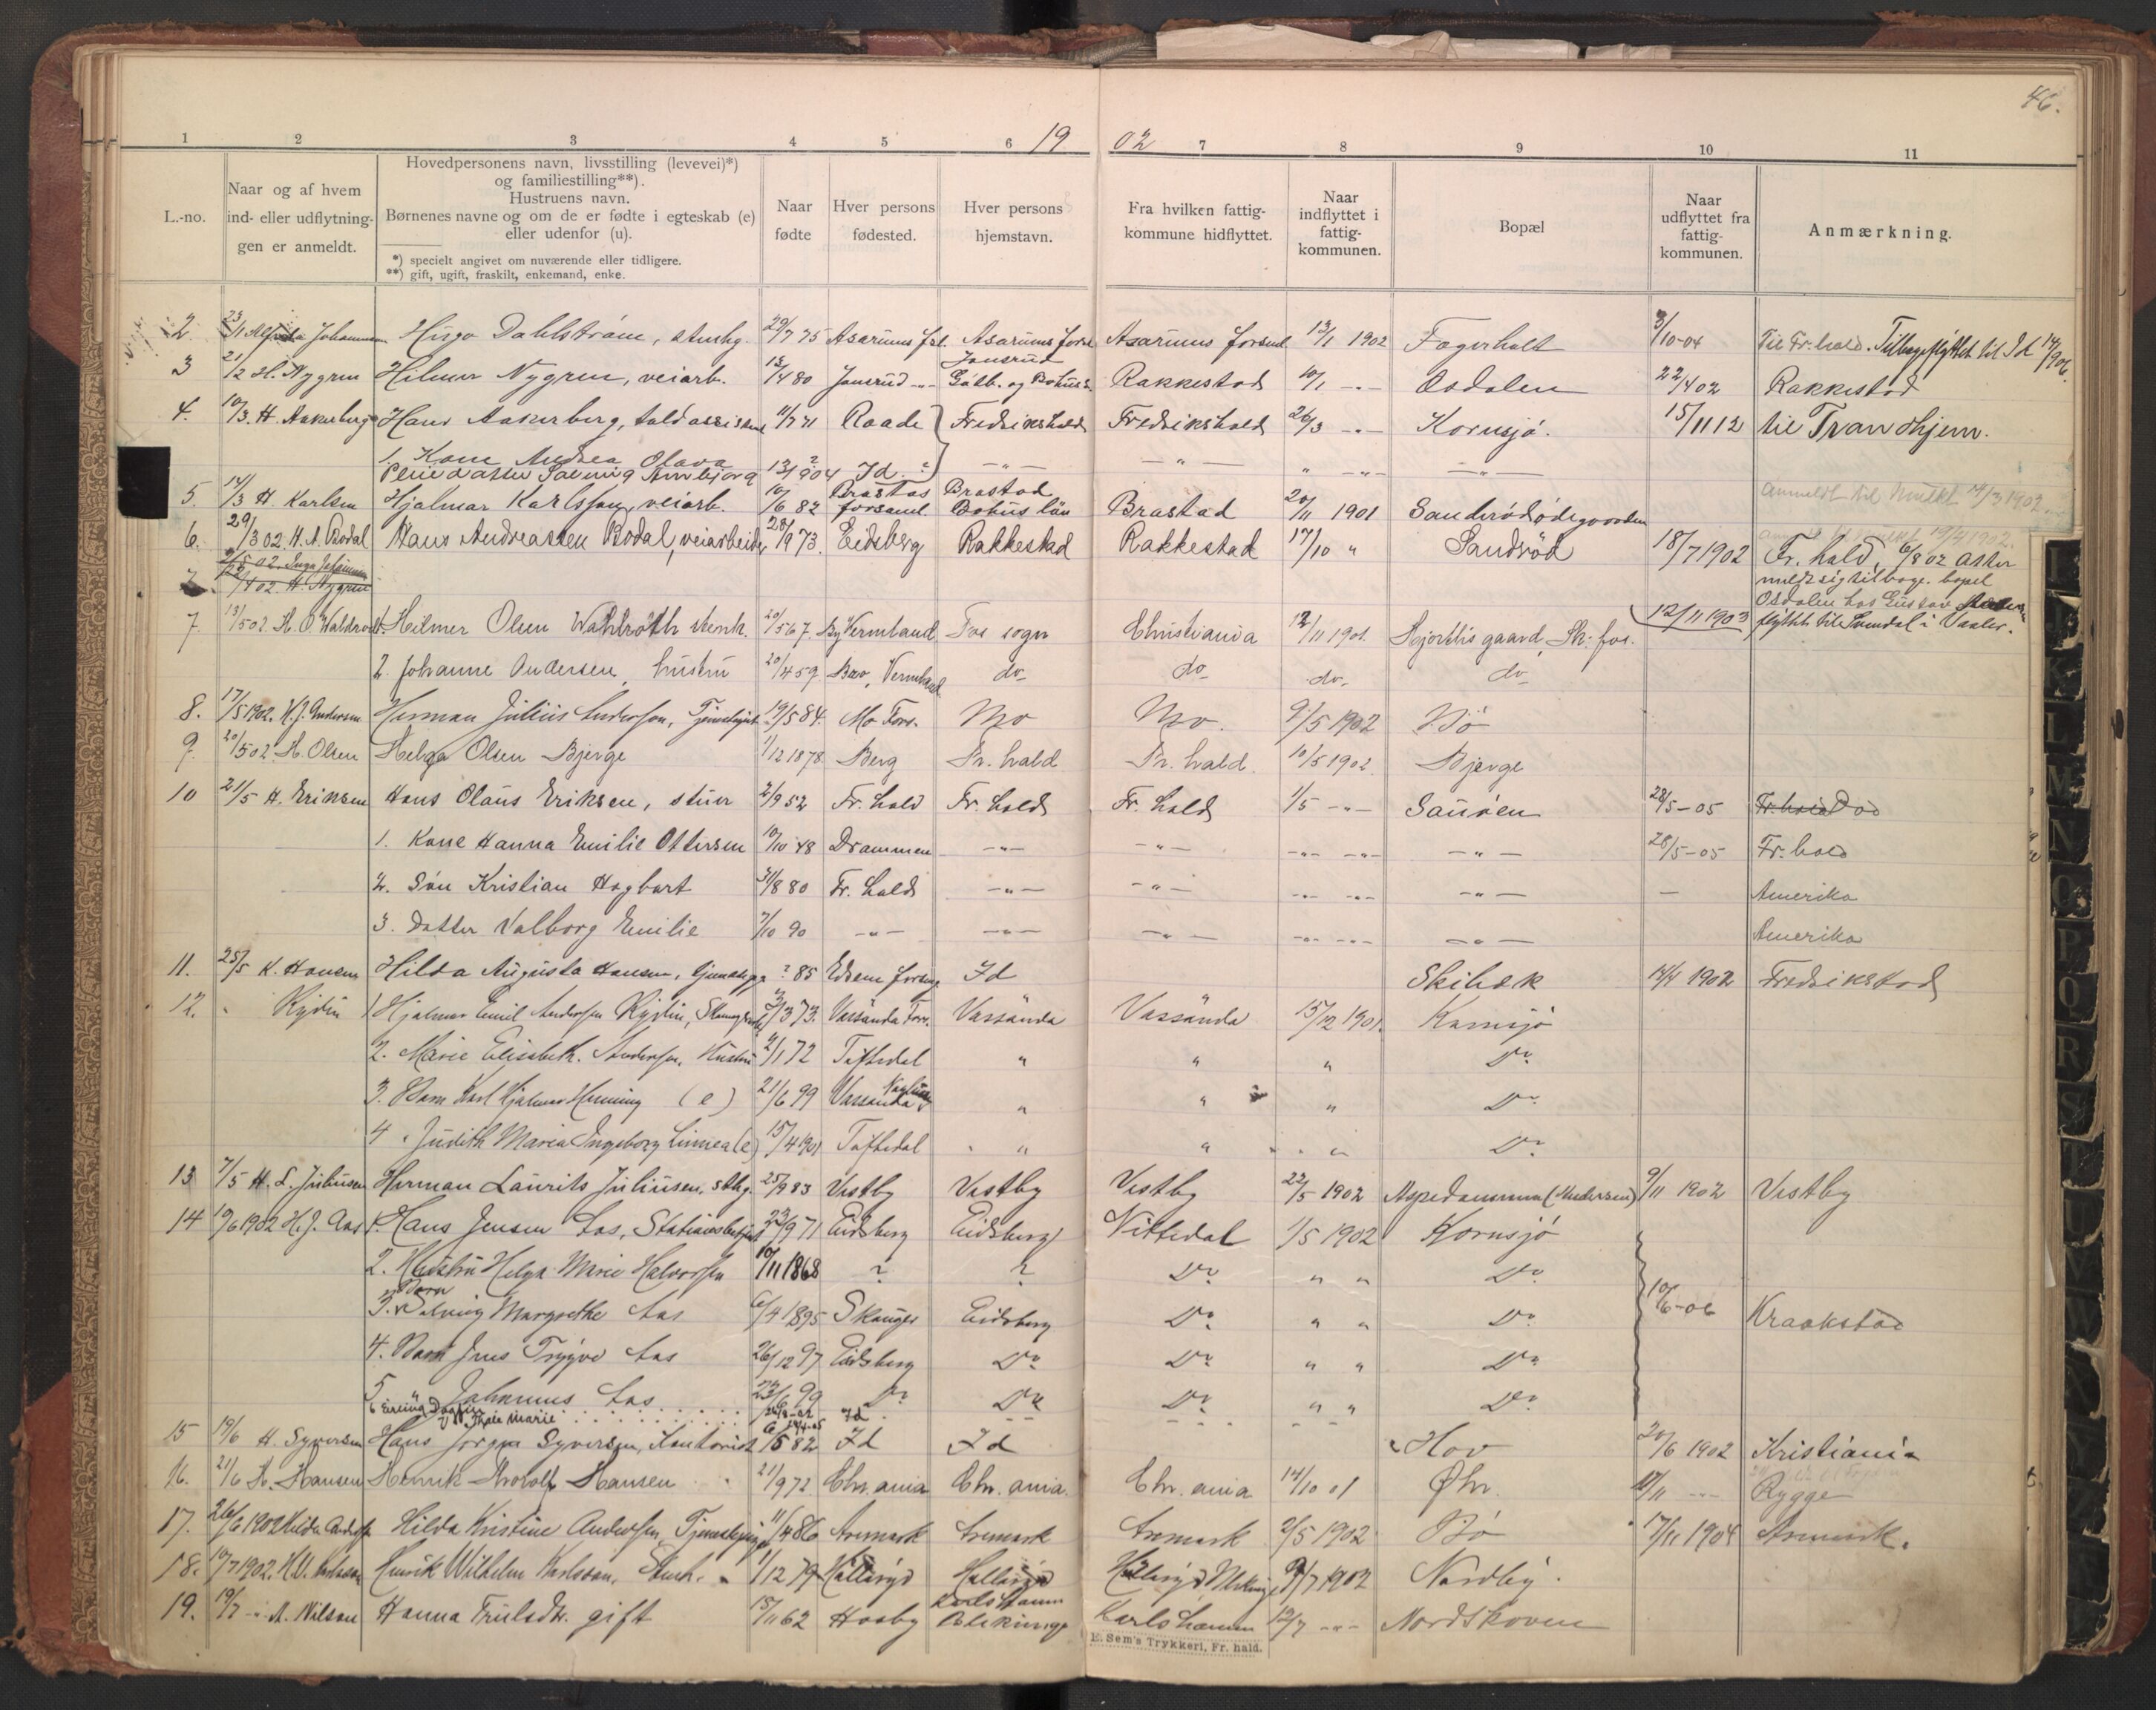 46.
19 02
1 2 3 4 5 6 7 8 9 10 11
L.-no.
Naar og af hvem
ind- eller udflytnin-
gen er anmeldt.
Hovedpersonens navn, livsstilling (levevei)*)
og familiestilling**).
Hustruens navn.
Børnenes navne og om de er fødte i egteskab (e)
eller udenfor (u).
*) specielt angivet om nuværende eller tidligere.
**) gift, ugift, fraskilt, enkemand, enke.
Naar
fødte
Hver persons
fødested.
Hver persons
hjemstavn.
Fra hvilken fattig-
kommune hidflyttet.
Naar
indflyttet i
fattig-
kommunen.
Bopæl
Naar
udflyttet fra
fattig-
kommunen.
Anmærkning.
2 23/1 Johannesen Hugo Dahlström, stenhg. 29/7 75 Asarums fsl. Asarums fors. Asarums forsml 13/1 1902 Fagerholt 3/10-04 Til Fr.hald. Tilbageflyttet til Id
3 21/2 H. Nygren Hilmer Nygren, veiarb. 13/4 80 Jansrud Götb. og Bohus Rakkestad 10/1 -"- Osdalen 22/4 02 Rakkestad
4. 10/3. H. Aakerberg Hans Aakerberg, toldassistent 11/7 71 Raade Fredrikshald Fredrikshald 26/3 -"- Kornsjø. 15/11 12 til Trondhjem.
1. Kone Andrea Olava ? ?
Pleiedatter Solveig Annbjørg 13/1 904 Id -"- -"- " -"- -"-
5. 14/3 H. Karlsen Hjalmar Karlsson, veiarb. 10/6 82 Brastad forsaml. Brastad Bohuslän Brastad 20/11 1901 Sandrødødegaarden Anmeldt til 14/3 1902
6. 29/3 02. H. A. Bodal Hans Andreassen Bodal, veiarbeider 28/9 73. Eidsberg Rakkestad Rakkestad 17/10 " Sandrød 18/7 1902 Fr. hald, 6/8 02 atter
meldt sig tilbage. bopel
Osdalen hos Gustav
7. 13/5 02. H. O. Waldroth 1. Hilmer Olsen Wahlroth stenh. 20/5 67. By Vermland Fos sogn Christiania 12/11 1901. Hjorthsgaard, Sk: fos. 12/11 1903 flyttet til Svendal i Vaaler.
2. Johanne Andersen, hustru 20/4 59. Bro, Vermland do do do do
8. 17/5 1902. H. J. Andersen Herman Julius Andersson, Tjenestegut 19/5 84. Mo Fors. Mo Mo. 9/5 1902 Bø
9. 20/5 02 H. Olsen Helga Olsen Bjerge 1/12 1878 Berg Fr. hald Fr. hald. 10/5 1902. Bjerge
10 21/5 H. Eriksen Hans Olaus Eriksen, stuer 2/9 52 Fr. hald Fr. hald Fr. hald 1/5 -"- Sauøen 28/5-05 Fr. hald Død
1. Kone Hanna Emilie Ottersen 10/10 48 Drammen -"- -"- -"- -"- -"- 28/5-05 Fr. hald
2. Søn Kristian Hagbart 31/8 80 Fr. hald -"- -"- -"- -"- -"- — Amerika
3. Datter Valborg Emilie 7/10 90 -"- -"- -"- -"- -"- -"- Amerika
11. 25/5 H. Hansen Hilda Augusta Hansen, tjenestepige ? 85 Id Skibæk 14/4 1902 Fredrikstad
12. " Rydin 1 Hjalmar Emil Andersson Rydin, 3/3 73. Vassända Fors. Vassända Vassända 15/12 1901. Kornsjø
2. Marie Elisabeth Andersson, Hustru 2/1 72 Töftedal " " " Do
3. Barn Karl Hjalmar Henning (e) 21/6 99 Vassända " " " Do
4 " Judith Maria Ingeborg Linnea (e) 15/4 1901 Töftedal " " " Do
13 7/5 H. L. Juliusen Herman Laurits Juliusen, sthg. 25/9 83 Vestby Vestby Vestby 22/5 1902 Aspedammen (Andersen) 9/11 1902 Vestby
14 19/6 1902 H. J. Aas 1. Hans Jensen Aas, Stationsbetjent 23/9 71 Eidsberg Eidsberg Nittedal 1/5 1902 Kornsjø
2. Hustru Helga Marie Halvorsen 10/11 1868 ? ? Do " " Do
Barn
3. Solveig Margrethe Aas 6/4 1895 Skauger Eidsberg Do " " Do 10/6-06 Kraakstad
4. Barn Jens Trygve Aas 26/12 97 Eidsberg Do Do " " Do
5 Johannes Aas 23/6 99 Do Do Do " " Do
6 Erling Dagfin 26/8-02 Id
Thale Marie 28/4-05
15 19/6 H. Syversen Hans Jørgen Syversen, Kontorist 6/5 82 Id Id Hov 20/6 1902 Kristiania
16. 21/6 H. Hansen Henrik Hansen 21/9 72 Chr. ania Chr. ania. Chr. ania 14/10 01 Øhr. 10/11 -"- Rygge
17. 26/6 1902 Hilda Anderss. Hilda Kristine Anderssen, Tjenestepige 11/4 86 Aremark Aremark Aremark 2/5 1902 Bø 17/11 1904 Aremark.
18. 19/7 1902. H. W. Karlsson Henrik Wilhelm Karlsson, Stenh. 1/12 79 Hallaryd Hallaryd 9/7 1902 Nordby.
19. 19/7 -"- A. Nilson Hanna Trulsdtr. gift 15/11 62 Hoby Karlshamn Blekinge Karlshamn 12/7 -"- Nordskoven
E. Sem's Trykkeri, Fr. hald.
K L M N O P Q R S T U